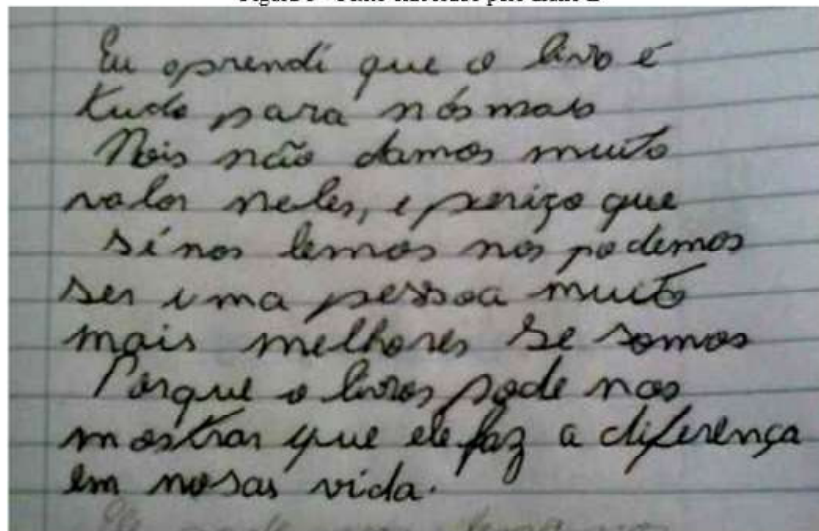 Eu aprendi que o livro é
tudo para nós mais
Nois não damos muito
valor neles, e perigo que
si nos lemos nos podemos
ser uma pessoa muito
mais melhores se somos
Porque o livros pode nos
mostrar que ele faz a diferença
em nosas vida.